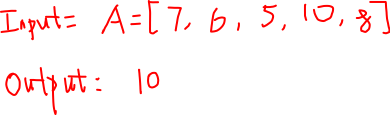 Input= A=[7, 6, 5, 10, 8]
Output: 10